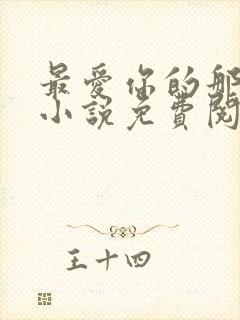 最爱你的那
小说免费阅
王十四